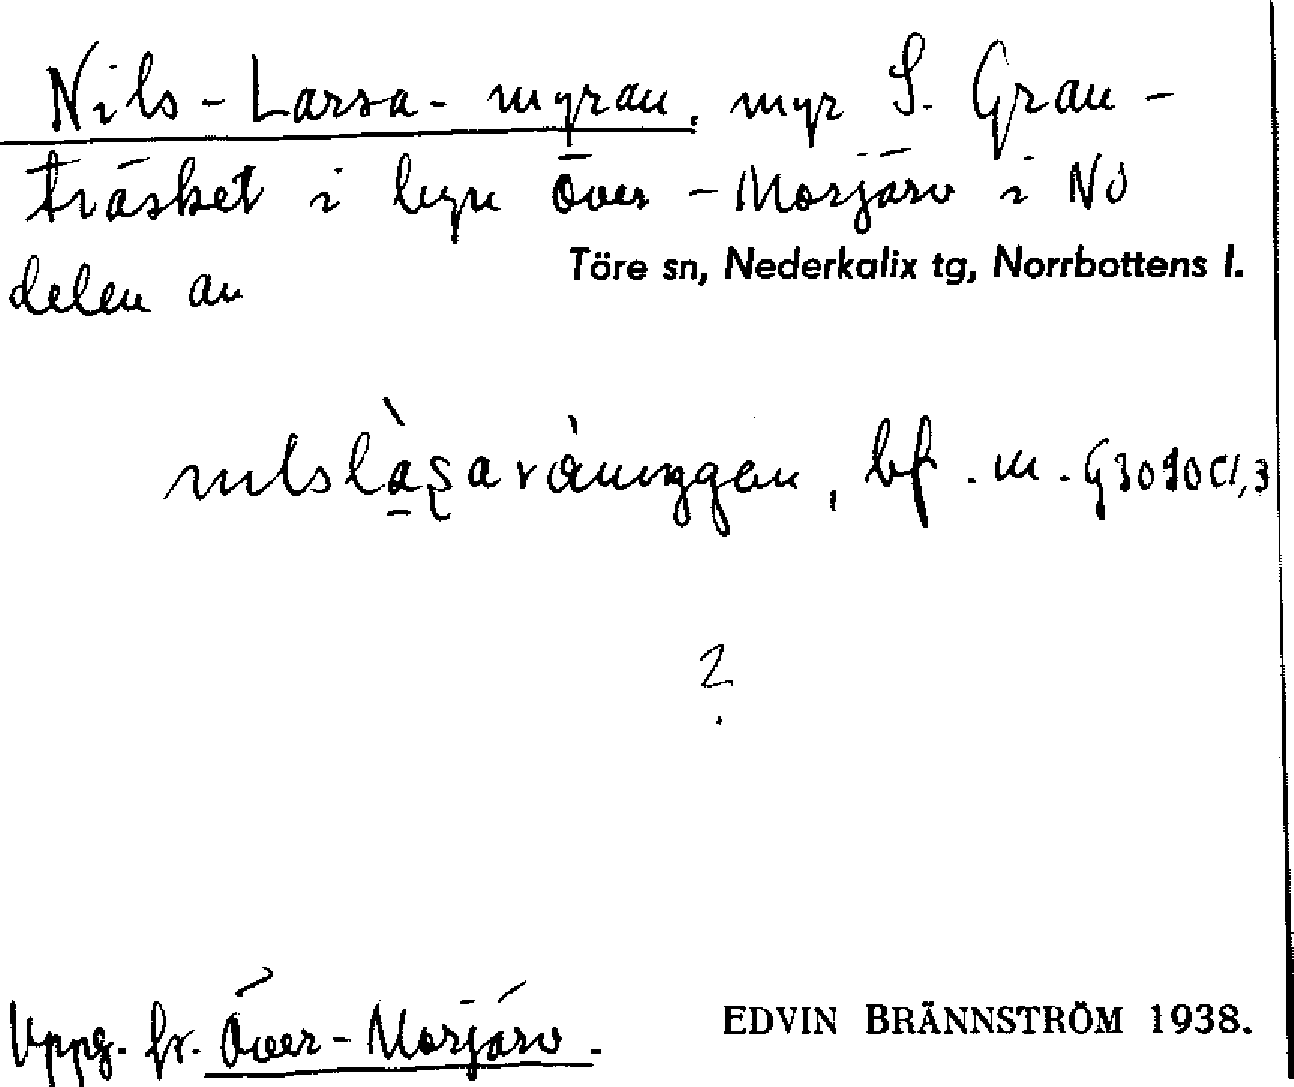 Nils-Larsa-myran, myr S. Gran-
träsket i byn Över-Morjärv i NO
Töre sn, Nederkalix tg, Norrbottens l.
delen av
bf. m.
?
Uppg. fr. Över-Morjärv.
EDVIN BRÄNNSTRÖM 1938.